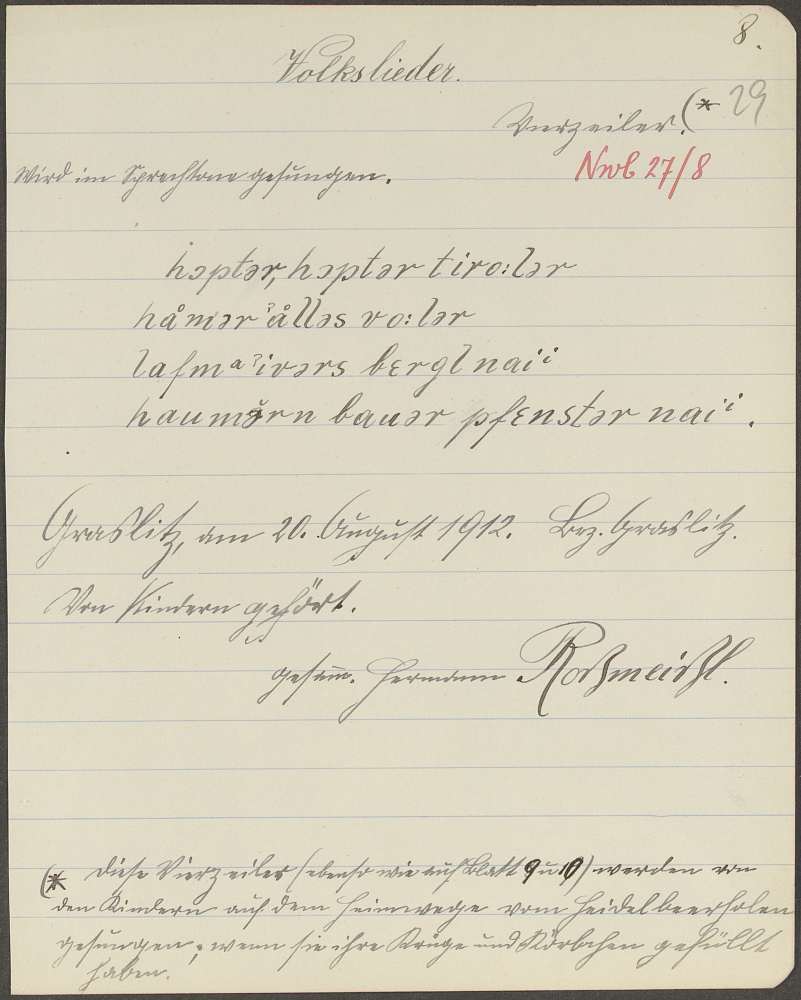 8.
Volkslieder.
Vierzeiler. (* 29
Nwb 27/8
Wird im Sprechtone gesungen.
hɔptər, hɔptər tiro:lər
håmər ˀålləs vo:lər
lafmᵃ ˀivərs bɛrgl naiⁱ
haumərn bauər pfɛnstər naiⁱ.
Graslitz, am 20. August 1912. Bez. Graslitz.
Von Kindern gehört.
gesam. Hermann Roßmeißl.
(* Diese Vierzeiler (ebenso wie auf Blatt 9 u 10) werden von
den Kindern auf dem Heimwege vom Heidelbeerholen
gesungen; wenn sie ihre Krüge und Körbchen gefüllt
haben.